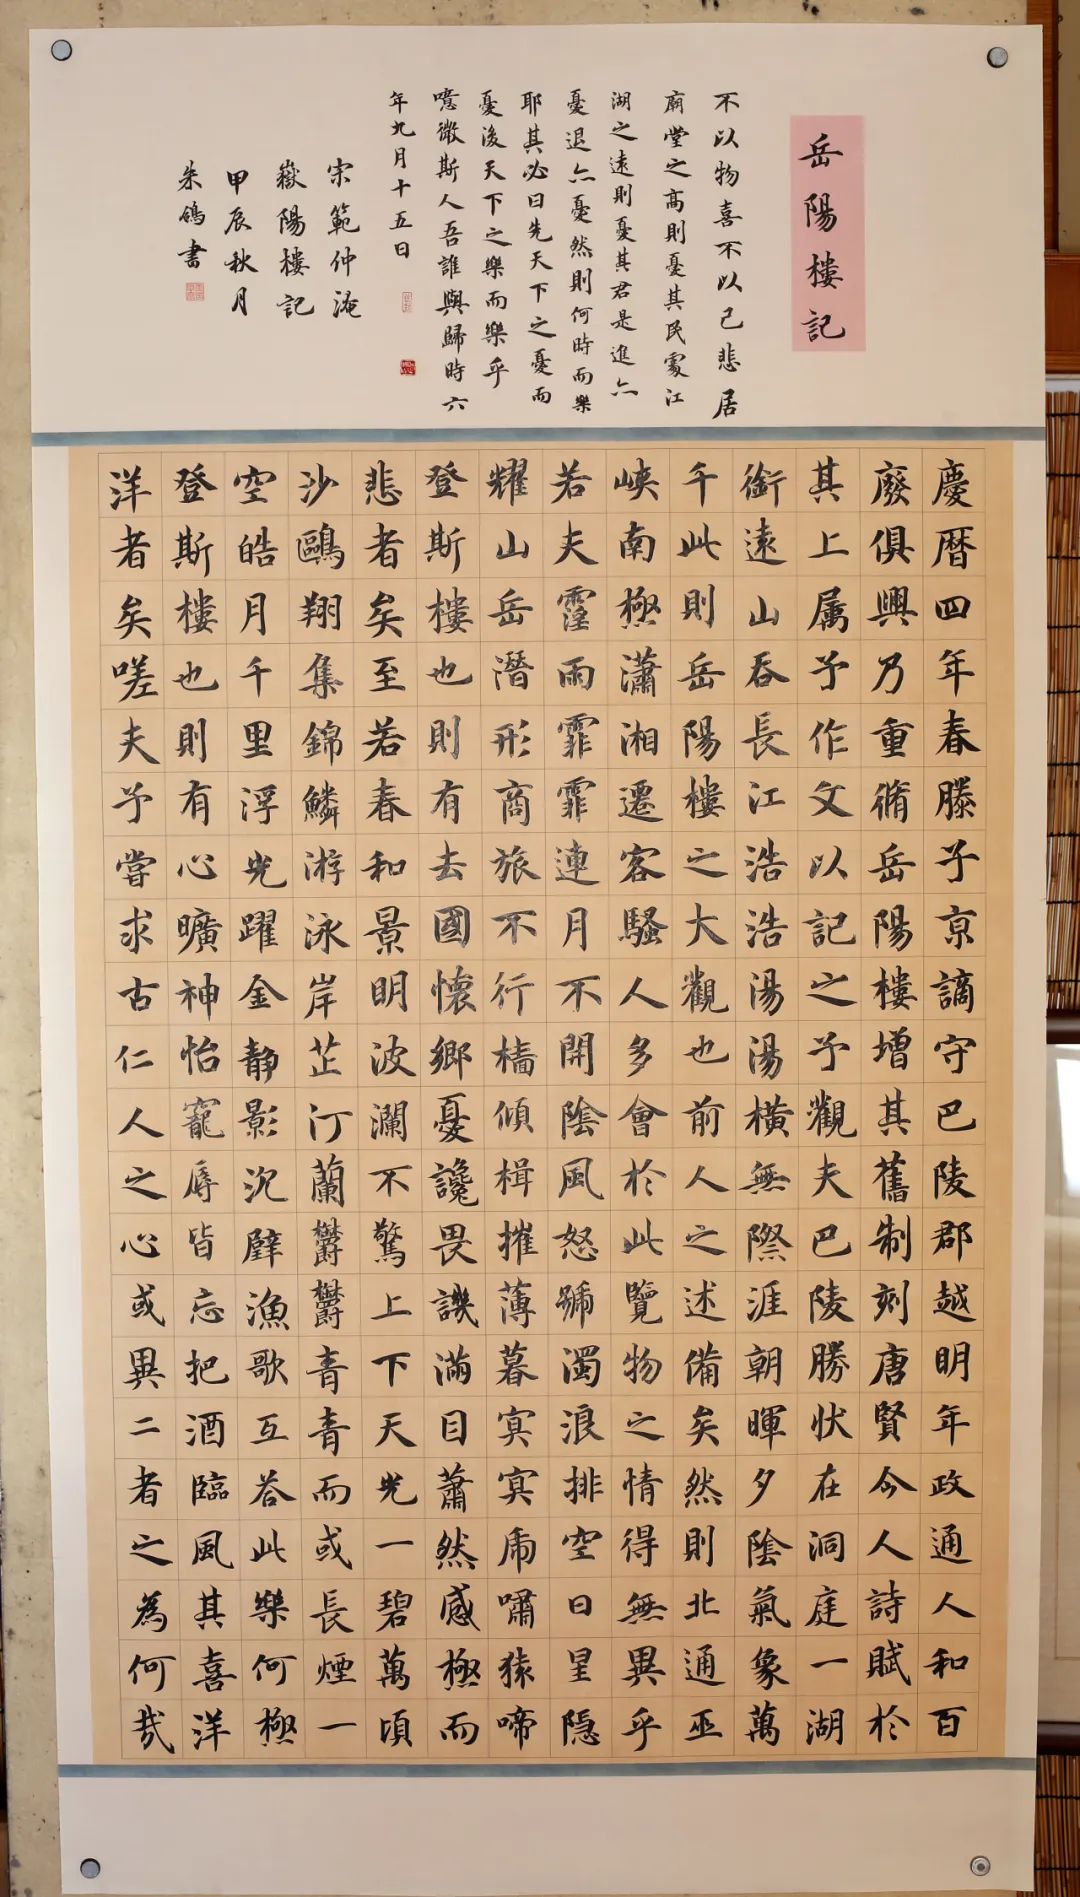 岳陽樓記
慶暦四年春滕子京謫守巴陵郡越明年政通人和百
廢俱興乃重脩岳陽樓增其舊制刻唐賢今人詩賦於
其上属予作文以記之予觀夫巴陵勝狀在洞庭一湖
銜遠山吞長江浩浩湯湯橫無際涯朝暉夕陰氣象萬
千此則岳陽樓之大觀也前人之述備矣然則北通巫
峽南極瀟湘遷客騷人多會於此覽物之情得無異乎
若夫霪雨霏霏連月不開陰風怒號濁浪排空日星隱
耀山岳潛形商旅不行檣傾楫摧薄暮冥冥虎嘯猿啼
登斯樓也則有去國懷鄉憂讒畏譏滿目蕭然感極而
悲者矣至若春和景明波瀾不驚上下天光一碧萬頃
沙鷗翔集錦鱗游泳岸芷汀蘭鬱鬱青青而或長煙一
空皓月千里浮光躍金靜影沉璧漁歌互答此樂何極
登斯樓也則有心曠神怡寵辱皆忘把酒臨風其喜洋
洋者矣嗟夫予嘗求古仁人之心或異二者之為何哉
不以物喜不以己悲居
廟堂之高則憂其民處江
湖之遠則憂其君是進亦
憂退亦憂然則何時而樂
耶其必曰先天下之憂而
憂後天下之樂而樂乎
噫微斯人吾誰與歸時六
年九月十五日
宋範仲淹
嶽陽樓記
甲辰秋月
朱鴿書